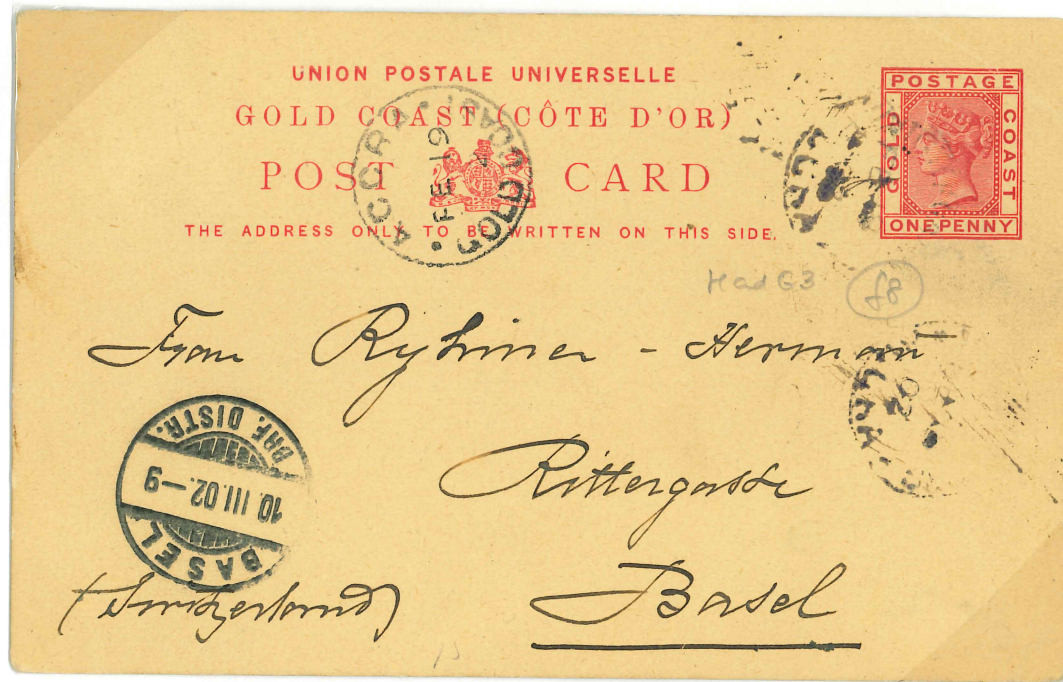 UNION POSTALE UNIVERSELLE
GOLD COAST (CÔTE D'OR)
POST CARD
THE ADDRESS ONLY TO BE WRITTEN ON THIS SIDE.
POSTAGE
GOLD
COAST
ONE PENNY
ACCRA
FE 19
GOLD COAST
H and G 3
£8
Frau Ryhiner - Hermann
Rittergasse
Basel
(Switzerland)
BASEL
10.III.02.-9
BRF. DISTR.